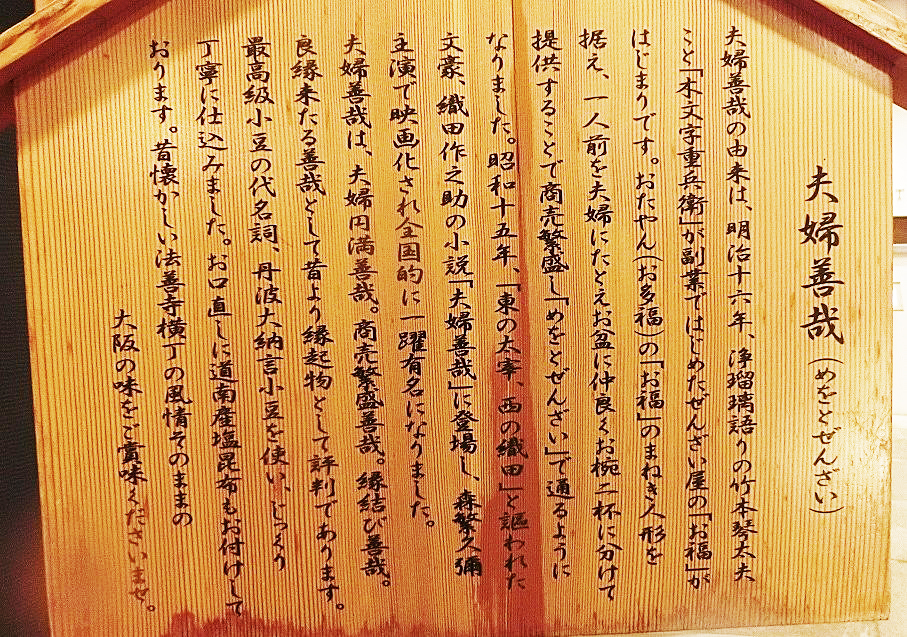 夫婦善哉(めをとぜんざい)
夫婦善哉の由来は、明治十六年、浄瑠璃語りの竹本琴太夫
こと「木文字重兵衛」が副業ではじめたぜんざい屋の「お福」が
はじまりです。おたやん(お多福)の「お福」のまねき人形を
据え、一人前を夫婦にたとえお盆に仲良くお椀二杯に分けて
提供することで商売繁盛し「めをとぜんざい」で通るように
なりました。昭和十五年、「東の太宰、西の織田」と謳われた
文豪、織田作之助の小説「夫婦善哉」に登場し、森繁久彌
主演で映画化され全国的に一躍有名になりました。
夫婦善哉は、夫婦円満善哉。商売繁盛善哉。縁結び善哉。
良縁来たる善哉として昔より縁起物として評判であります。
最高級小豆の代名詞、丹波大納言小豆を使い、じっくり
丁寧に仕込みました。お口直しに道南産塩昆布もお付けして
おります。昔懐かしい法善寺横丁の風情そのままの
大阪の味をご賞味くださいませ。